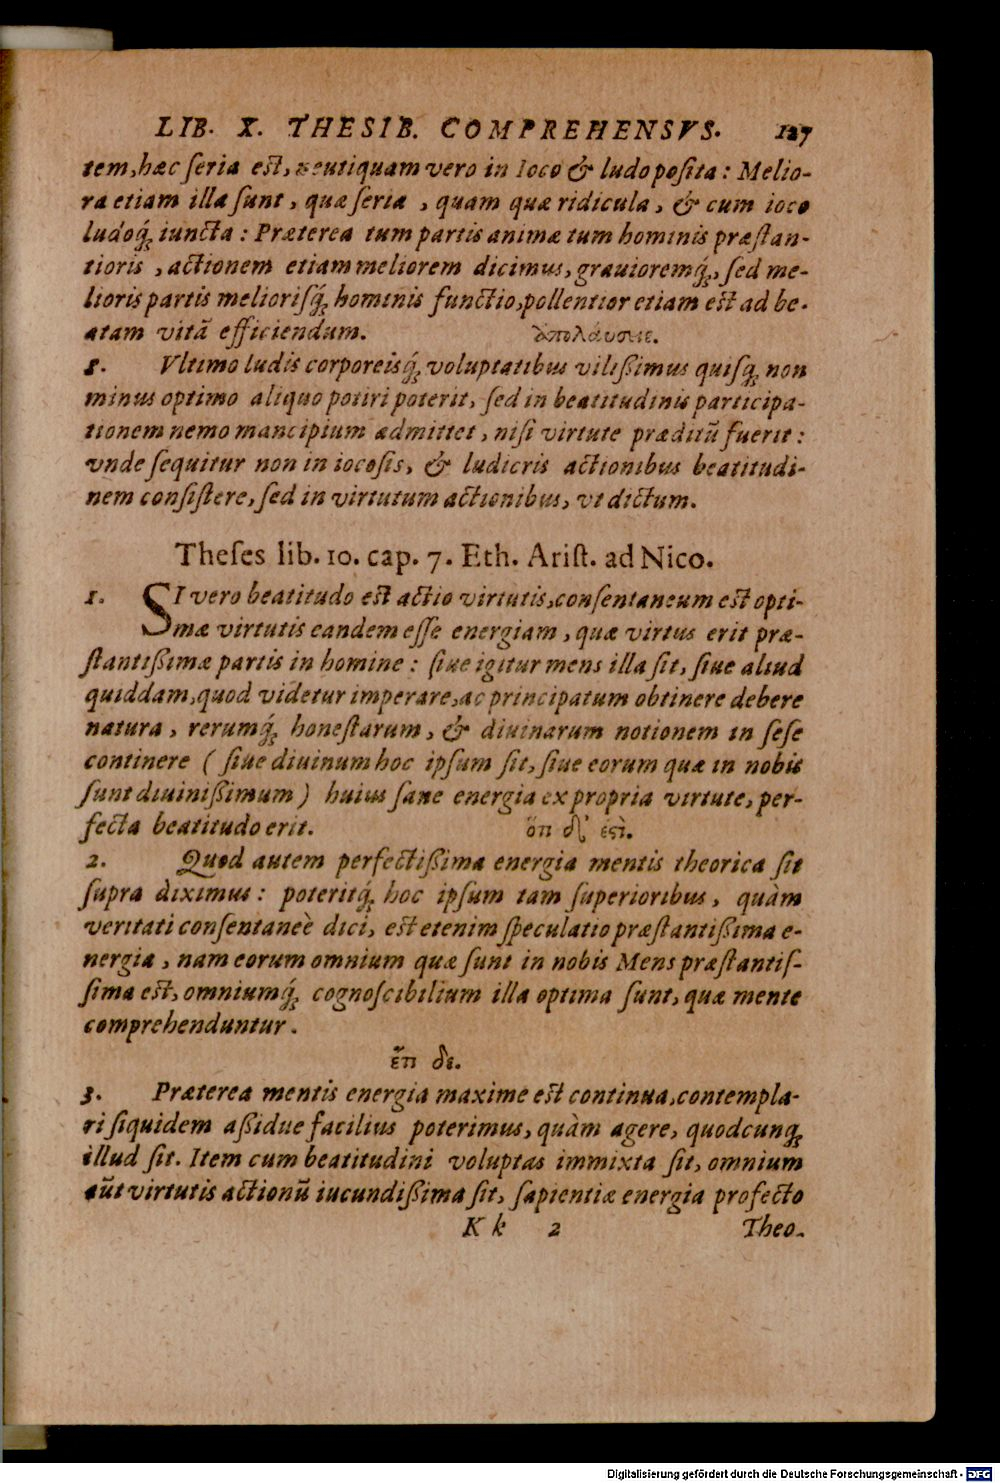 LIB. X. THESIB. COMPREHENSVS. 127
tem, hæc seria est, neutiquam vero in ioco & ludo posita: Melio-
ra etiam illa sunt, quæ seria, quam quæ ridicula, & cum ioco
ludoq́ꝫ iuncta: Præterea tum partis animæ tum hominis præstan-
tioris, actionem etiam meliorem dicimus, grauioremq́ꝫ, sed me-
lioris partis meliorisq́ꝫ hominis functio, pollentior etiam est ad be-
atam vitã efficiendum. ἀπολάυσειε.
5. Vltimo ludis corporeisq́ꝫ voluptatibus vilißimus quisqꝫ non
minus optimo aliquo potiri poterit, sed in beatitudinis participa-
tionem nemo mancipium admittet, nisi virtute præditũ fuerit:
vnde sequitur non in iocosis, & ludicris actionibus beatitudi-
nem consistere, sed in virtutum actionibus, vt dictum.
Theses lib. 10. cap. 7. Eth. Arist. ad Nico.
1. SI vero beatitudo est actio virtutis, consentaneum est opti-
mæ virtutis eandem esse energiam, quæ virtus erit præ-
stantißimæ partis in homine: siue igitur mens illa sit, siue aliud
quiddam, quod videtur imperare, ac principatum obtinere debere
natura, rerumq́ꝫ honestarum, & diuinarum notionem in sese
continere (siue diuinum hoc ipsum sit, siue eorum quæ in nobis
sunt diuinißimum) huius sane energia ex propria virtute, per-
fecta beatitudo erit. ὅτι δ' ἐστὶ.
2. Quod autem perfectißima energia mentis theorica sit
supra diximus: poteritq́ꝫ hoc ipsum tam superioribus, quàm
veritati consentaneè dici, est etenim speculatio præstantißima e-
nergia, nam eorum omnium quæ sunt in nobis Mens præstantis-
sima est, omniumq́ꝫ cognoscibilium illa optima sunt, quæ mente
comprehenduntur.
ἔτι δε.
3. Præterea mentis energia maxime est continua, contempla-
ri siquidem aßidue facilius poterimus, quàm agere, quodcunqꝫ
illud sit. Item cum beatitudini voluptas immixta sit, omnium
aũt virtutis actionũ iucundißima sit, sapientiæ energia profecto
K k 2 Theo-
Digitalisierung gefördert durch die Deutsche Forschungsgemeinschaft - DFG